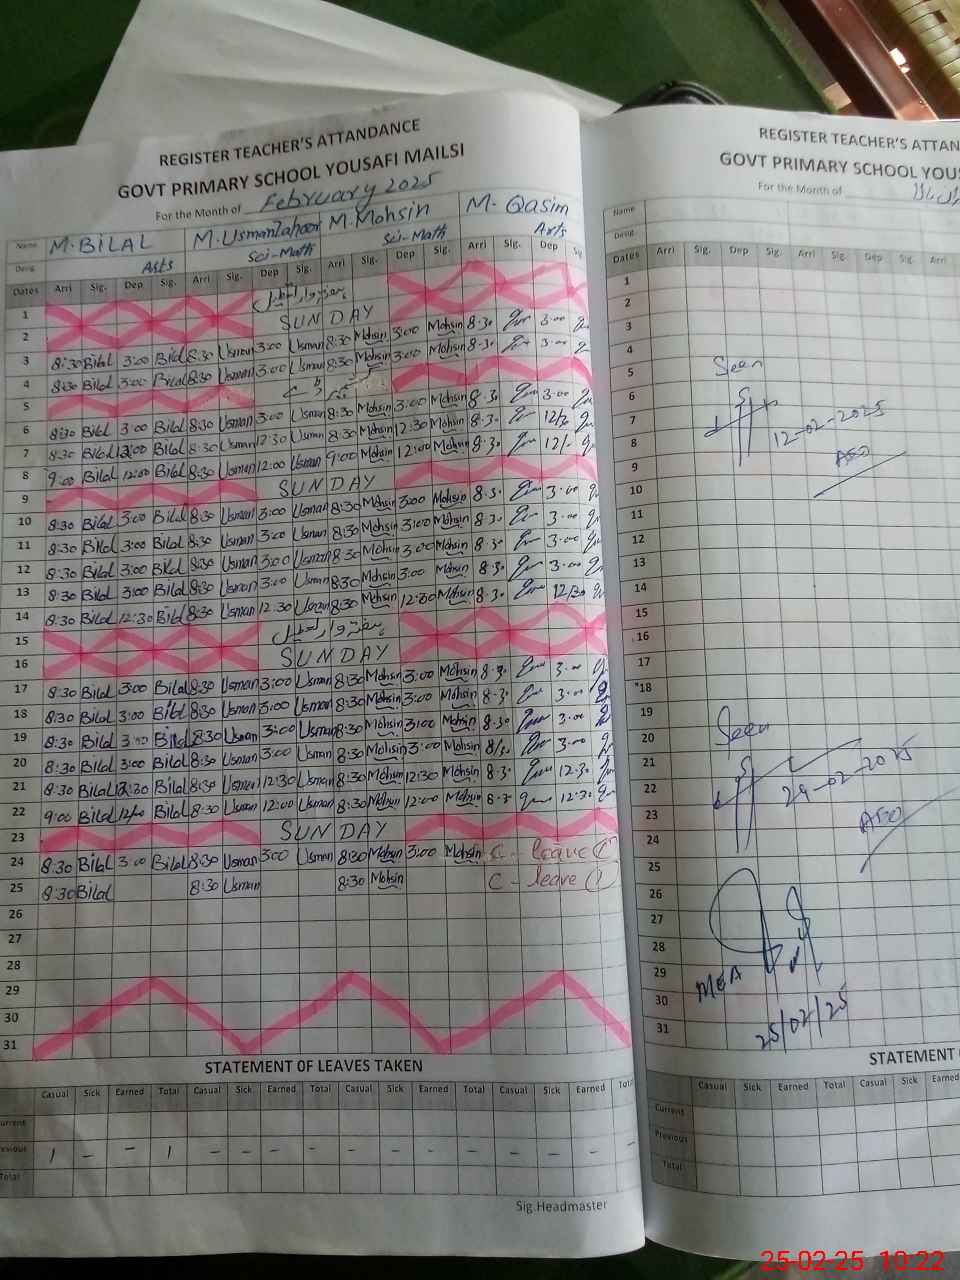 REGISTER TEACHER'S ATTANDANCE
GOVT PRIMARY SCHOOL YOUSAFI MAILSI
For the Month of February 2025
Name M.BILAL M.UsmanTahoor M.Mohsin M.Qasim
Desig. Arts Sci-Math Sci-Math Arts
Dates Arri Sig. Dep Sig. Arri Sig. Dep Sig. Arri Sig. Dep Sig. Arri Sig. Dep
1
2 SUNDAY
3 8:30 Bilal 3:00 Bilal 8:30 Usman 3:00 Usman 8:30 Mohsin 3:00 Mohsin 8.30 3.00
4 8:30 Bilal 3:00 Bilal 8:30 Usman 3:00 Usman 8:30 Mohsin 3:00 Mohsin 8.30 3.00
5
6 8:30 Bilal 3:00 Bilal 8:30 Usman 3:00 Usman 8:30 Mohsin 3:00 Mohsin 8.30 3.00
7 8:30 Bilal 12:00 Bilal 8:30 Usman 12:30 Usman 8:30 Mohsin 12:30 Mohsin 8.30 12/30
8 9:00 Bilal 12:00 Bilal 8:30 Usman 12:00 Usman 9:00 Mohsin 12:00 Mohsin 8.30 12/-
9 SUNDAY
10 8:30 Bilal 3:00 Bilal 8:30 Usman 3:00 Usman 8:30 Mohsin 3:00 Mohsin 8.30 3.00
11 8:30 Bilal 3:00 Bilal 8:30 Usman 3:00 Usman 8:30 Mohsin 3:00 Mohsin 8.30 3.00
12 8:30 Bilal 3:00 Bilal 8:30 Usman 3:00 Usman 8:30 Mohsin 3:00 Mohsin 8.30 3.00
13 8:30 Bilal 3:00 Bilal 8:30 Usman 3:00 Usman 8:30 Mohsin 3:00 Mohsin 8.30 3.00
14 8:30 Bilal 12:30 Bilal 8:30 Usman 12:30 Usman 8:30 Mohsin 12:30 Mohsin 8.30 12/30
15
16 SUNDAY
17 8:30 Bilal 3:00 Bilal 8:30 Usman 3:00 Usman 8:30 Mohsin 3:00 Mohsin 8.30 3.00
18 8:30 Bilal 3:00 Bilal 8:30 Usman 3:00 Usman 8:30 Mohsin 3:00 Mohsin 8.30 3.00
19 8:30 Bilal 3:00 Bilal 8:30 Usman 3:00 Usman 8:30 Mohsin 3:00 Mohsin 8.30 3.00
20 8:30 Bilal 3:00 Bilal 8:30 Usman 3:00 Usman 8:30 Mohsin 3:00 Mohsin 8/30 3.00
21 8:30 Bilal 12:30 Bilal 8:30 Usman 12:30 Usman 8:30 Mohsin 12:30 Mohsin 8.30 12.30
22 9:00 Bilal 12:00 Bilal 8:30 Usman 12:00 Usman 8:30 Mohsin 12:00 Mohsin 8.30 12.30
23 SUNDAY
24 8:30 Bilal 3:00 Bilal 8:30 Usman 3:00 Usman 8:30 Mohsin 3:00 Mohsin C-leave
25 8:30 Bilal 8:30 Usman 8:30 Mohsin C-leave (1)
26
27
28
29
30
31
STATEMENT OF LEAVES TAKEN
Casual Sick Earned Total Casual Sick Earned Total Casual Sick Earned Total Casual Sick Earned Total
Current
Previous 1 - - 1 - - - - - - - - - - - -
Total
Sig.Headmaster
REGISTER TEACHER'S ATTAN
GOVT PRIMARY SCHOOL YOUS
For the Month of
Name
Desig.
Dates Arri Sig. Dep Sig. Arri Sig. Dep Sig.
1
2
3
4
5 Seen
6
7 12-02-2025
8
9 AEO
10
11
12
13
14
15
16
17
18
19
20 Seen
21
22 24-02-2025
23 AEO
24
25
26
27
28
29 MEA
30
31 25/02/25
STATEMENT
Casual Sick Earned Total Casual Sick Earned
Current
Previous
Total
25-02-25 10:22